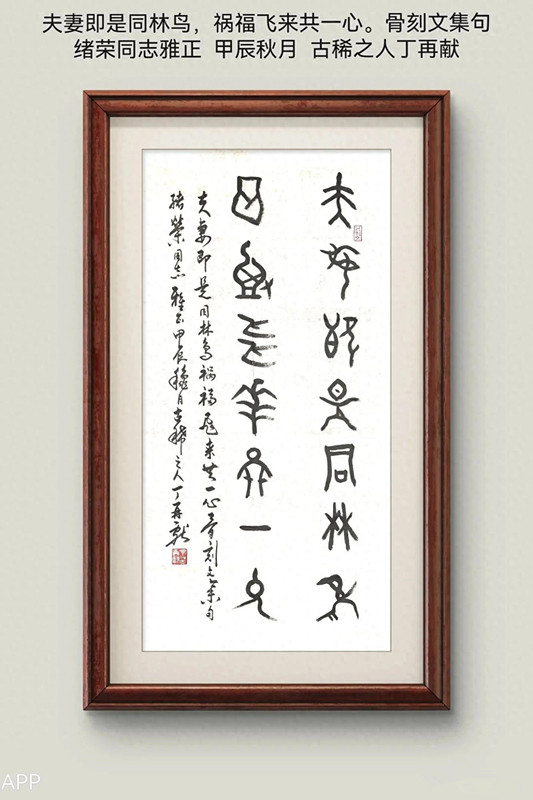 夫妻即是同林鸟，祸福飞来共一心。骨刻文集句
绪荣同志雅正 甲辰秋月 古稀之人丁再献
夫妻即是同林鸟
祸福飞来共一心
夫妻即是同林鸟祸福飞来共一心骨刻文集句
绪荣同志雅正甲辰秋月古稀之人丁再献
APP